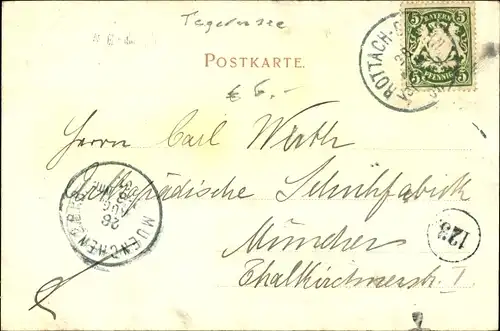 Tegernsee
BAYERN
5 5
PFENNIG
5 5
ROTTACH-
POSTKARTE.
€ 6.-
Herrn Carl Wirth
Orthopädische Schuhfabrik
München
Thalkirchnerstr. 1
MUENCHEN
26
AUG
123.